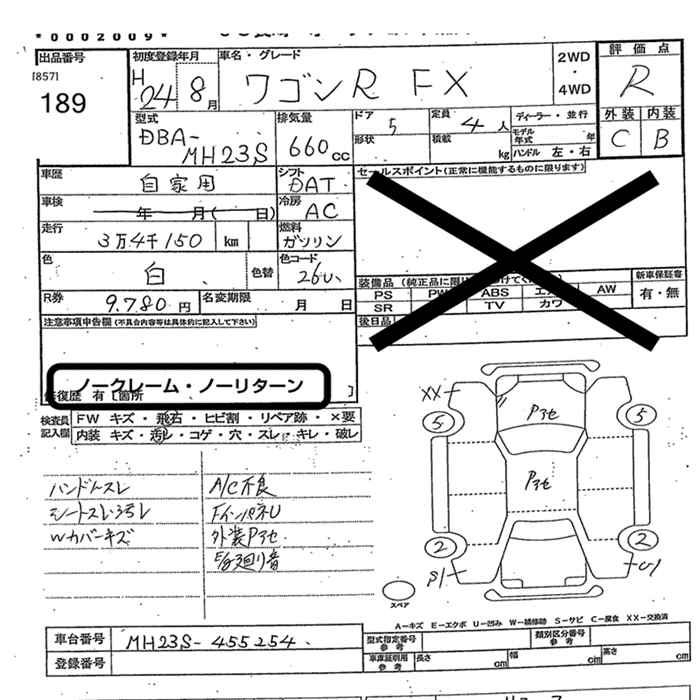 *0002009*
出品番号
[857]
189
初度登録年月
H
24 8月
車名・グレード
ワゴンR FX
2WD
・
4WD
評価点
R
外装 内装
C B
型式
DBA-
MH23S
排気量
660cc
ドア
5
形状
定員
4人
積載
kg
ディーラー・並行
モデル年式 年
ハンドル 左・右
車歴
自家用
シフト
DAT
車検
年 月( 日)
冷房
AC
走行
3万4千150 km
燃料
ガソリン
色
白
色替
色コード
26U
R券
9.780円
名変期限
月 日
セールスポイント(正常に機能するものに限ります)
装備品
PS
ABS
AW
SR
TV
カワ
後日品
新車保証書
有・無
注意事項申告欄(不具合内容等は具体的に記入して下さい)
ノークレーム・ノーリターン
修復歴 有 [箇所 ]
検査員記入欄
FW キズ・飛石・ヒビ割・リペア跡・×要
内装 キズ・汚れ・コゲ・穴・スレ・キレ・破レ
ハンドルスレ
シートスレ
Wカバーキズ
A/C不良
外装Pアセ
E/g廻り音
XX
5
Pアセ
5
Pアセ
2
2
スペア
A-キズ E-エクボ U-凹み W-補修跡 S-サビ C-腐食 XX-交換済
車台番号
MH23S-455254
登録番号
型式指定番号
参考
類別区分番号
参考
車庫証明用
参考
長さ cm
幅 cm
高さ cm